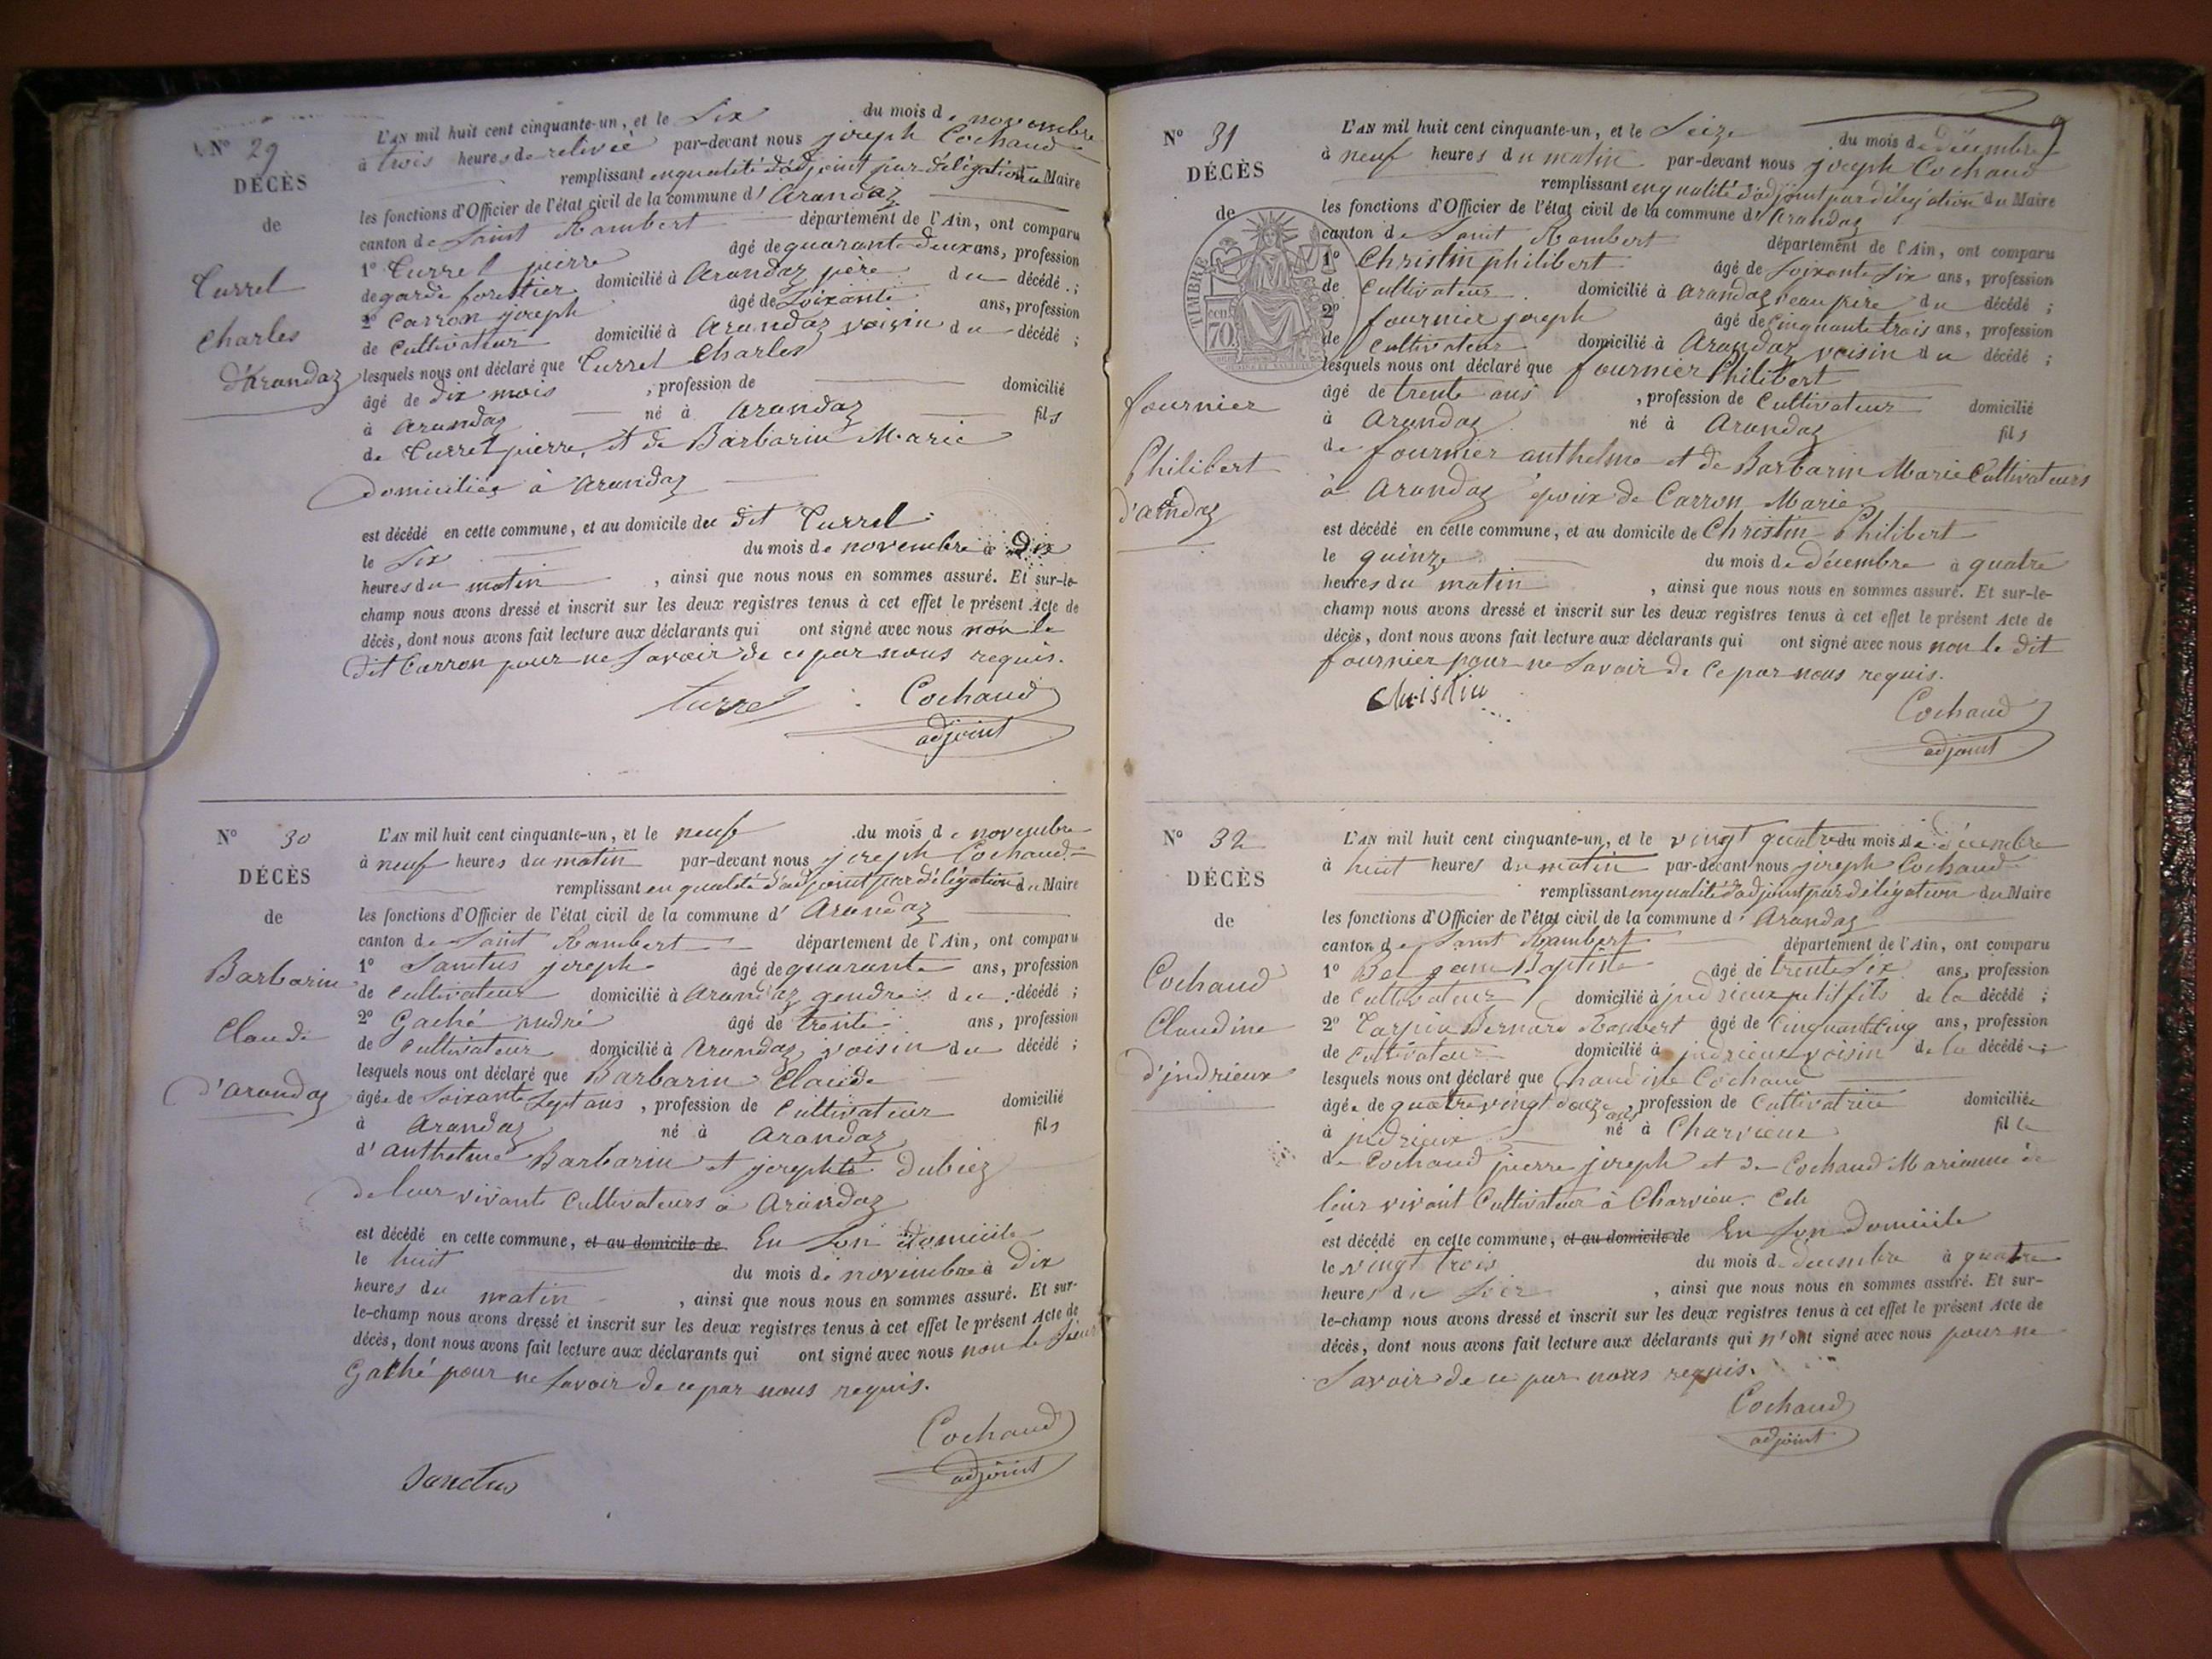 N° 29
DÉCÈS
de
Turrel
Charles
d'Arandaz
L'AN mil huit cent cinquante-un, et le Six du mois de novembre
à trois heures de relivée par-devant nous joseph Cochaud
remplissant en qualité d'adjoint par déligation du Maire
les fonctions d'Officier de l'état civil de la commune d' Arandaz
canton de Saint Rambert département de l'Ain, ont comparu
1° Turrel pierre âgé de quarante deux ans, profession
de garde forestier domicilié à Arandaz père du décédé ;
2° Carron joseph âgé de Soixante ans, profession
de Cultivateur domicilié à Arandaz voisin du décédé ;
lesquels nous ont déclaré que Turrel Charles
âgé de dix mois , profession de domicilié
à Arandaz né à Arandaz fils
de Turrel pierre, et de Barbarin Marie
domiciliés à Arandaz
est décédé en cette commune, et au domicile du dit Turrel
le Six du mois de novembre à Dix
heures du matin , ainsi que nous nous en sommes assuré. Et sur-le-
champ nous avons dressé et inscrit sur les deux registres tenus à cet effet le présent Acte de
décès, dont nous avons fait lecture aux déclarants qui ont signé avec nous non le
dit Carron pour ne Savoir de ce par nous requis.
turrel Cochaud
adjoint
N° 30
DÉCÈS
de
Barbarin
Claude
d'arandaz
L'AN mil huit cent cinquante-un, et le neuf du mois de novembre
à neuf heures du matin par-devant nous joseph Cochaud
remplissant en qualité d'adjoint par déligation du Maire
les fonctions d'Officier de l'état civil de la commune d' Arandaz
canton de Saint Rambert département de l'Ain, ont comparu
1° Sanctus joseph âgé de quarante ans, profession
de Cultivateur domicilié à Arandaz gendre du décédé ;
2° Gaché André âgé de trente ans, profession
de Cultivateur domicilié à Arandaz voisin du décédé ;
lesquels nous ont déclaré que Barbarin Claude
âgée de Soixante Sept ans , profession de Cultivateur domicilié
à Arandaz né à Arandaz fils
d' anthelme Barbarin et josephte Dubiez
de leur vivants Cultivateurs à Arandaz
est décédé en cette commune, et au domicile de En Son domicile
le huit du mois de novembre à dix
heures du matin , ainsi que nous nous en sommes assuré. Et sur-
le-champ nous avons dressé et inscrit sur les deux registres tenus à cet effet le présent Acte de
décès, dont nous avons fait lecture aux déclarants qui ont signé avec nous non le Sieur
Gaché pour ne Savoir de ce par nous requis.
Cochaud
adjoint
Sanctus
N° 31
DÉCÈS
de
TIMBRE
70
fournier
Philibert
L'AN mil huit cent cinquante-un, et le Seize du mois de décembre
à neuf heures du matin par-devant nous joseph Cochaud
remplissant en qualité d'adjoint par déligation du Maire
les fonctions d'Officier de l'état civil de la commune d' Arandaz
canton de Saint Rambert département de l'Ain, ont comparu
1° Christin philibert âgé de Soixante Six ans, profession
de Cultivateur domicilié à Arandaz beau père du décédé ;
2° fournier joseph âgé de Cinquante trois ans, profession
de Cultivateur domicilié à Arandaz voisin du décédé ;
lesquels nous ont déclaré que fournier Philibert
âgé de trente ans , profession de Cultivateur domicilié
à Arandaz né à Arandaz fils
de fournier anthelme et de Barbarin Marie Cultivateurs
à Arandaz époux de Carron Marie
est décédé en cette commune, et au domicile de Christin Philibert
le quinze du mois de décembre à quatre
heures du matin , ainsi que nous nous en sommes assuré. Et sur-le-
champ nous avons dressé et inscrit sur les deux registres tenus à cet effet le présent Acte de
décès, dont nous avons fait lecture aux déclarants qui ont signé avec nous non le dit
fournier pour ne Savoir de Ce par nous requis.
Christin
Cochaud
adjoint
N° 32
DÉCÈS
de
Cochaud
Claudine
d'indrieux
L'AN mil huit cent cinquante-un, et le vingt quatre du mois de décembre
à huit heures du matin par-devant nous joseph Cochaud
remplissant en qualité d'adjoint par déligation du Maire
les fonctions d'Officier de l'état civil de la commune d' Arandaz
canton de Saint Rambert département de l'Ain, ont comparu
1° Baptiste âgé de trente Six ans, profession
de Cultivateur domicilié à indrieux petit fils de la décédé ;
2° Tarpin Bernard Rambert âgé de Cinquante Cinq ans, profession
de Cultivateur domicilié à indrieux voisin de la décédé ;
lesquels nous ont déclaré que Claudine Cochaud
âgée de quatre vingt douze ans , profession de Cultivatrice domiciliée
à indrieux né à Charvieux fille
de Cochaud pierre joseph et de Cochaud Marianne de
leur vivant Cultivateur à Charvieu
est décédé en cette commune, et au domicile de En Son Domicile
le vingt trois du mois de décembre à quatre
heures du Soir , ainsi que nous nous en sommes assuré. Et sur-
le-champ nous avons dressé et inscrit sur les deux registres tenus à cet effet le présent Acte de
décès, dont nous avons fait lecture aux déclarants qui n'ont signé avec nous pour ne
Savoir de ce par nous requis.
Cochaud
adjoint